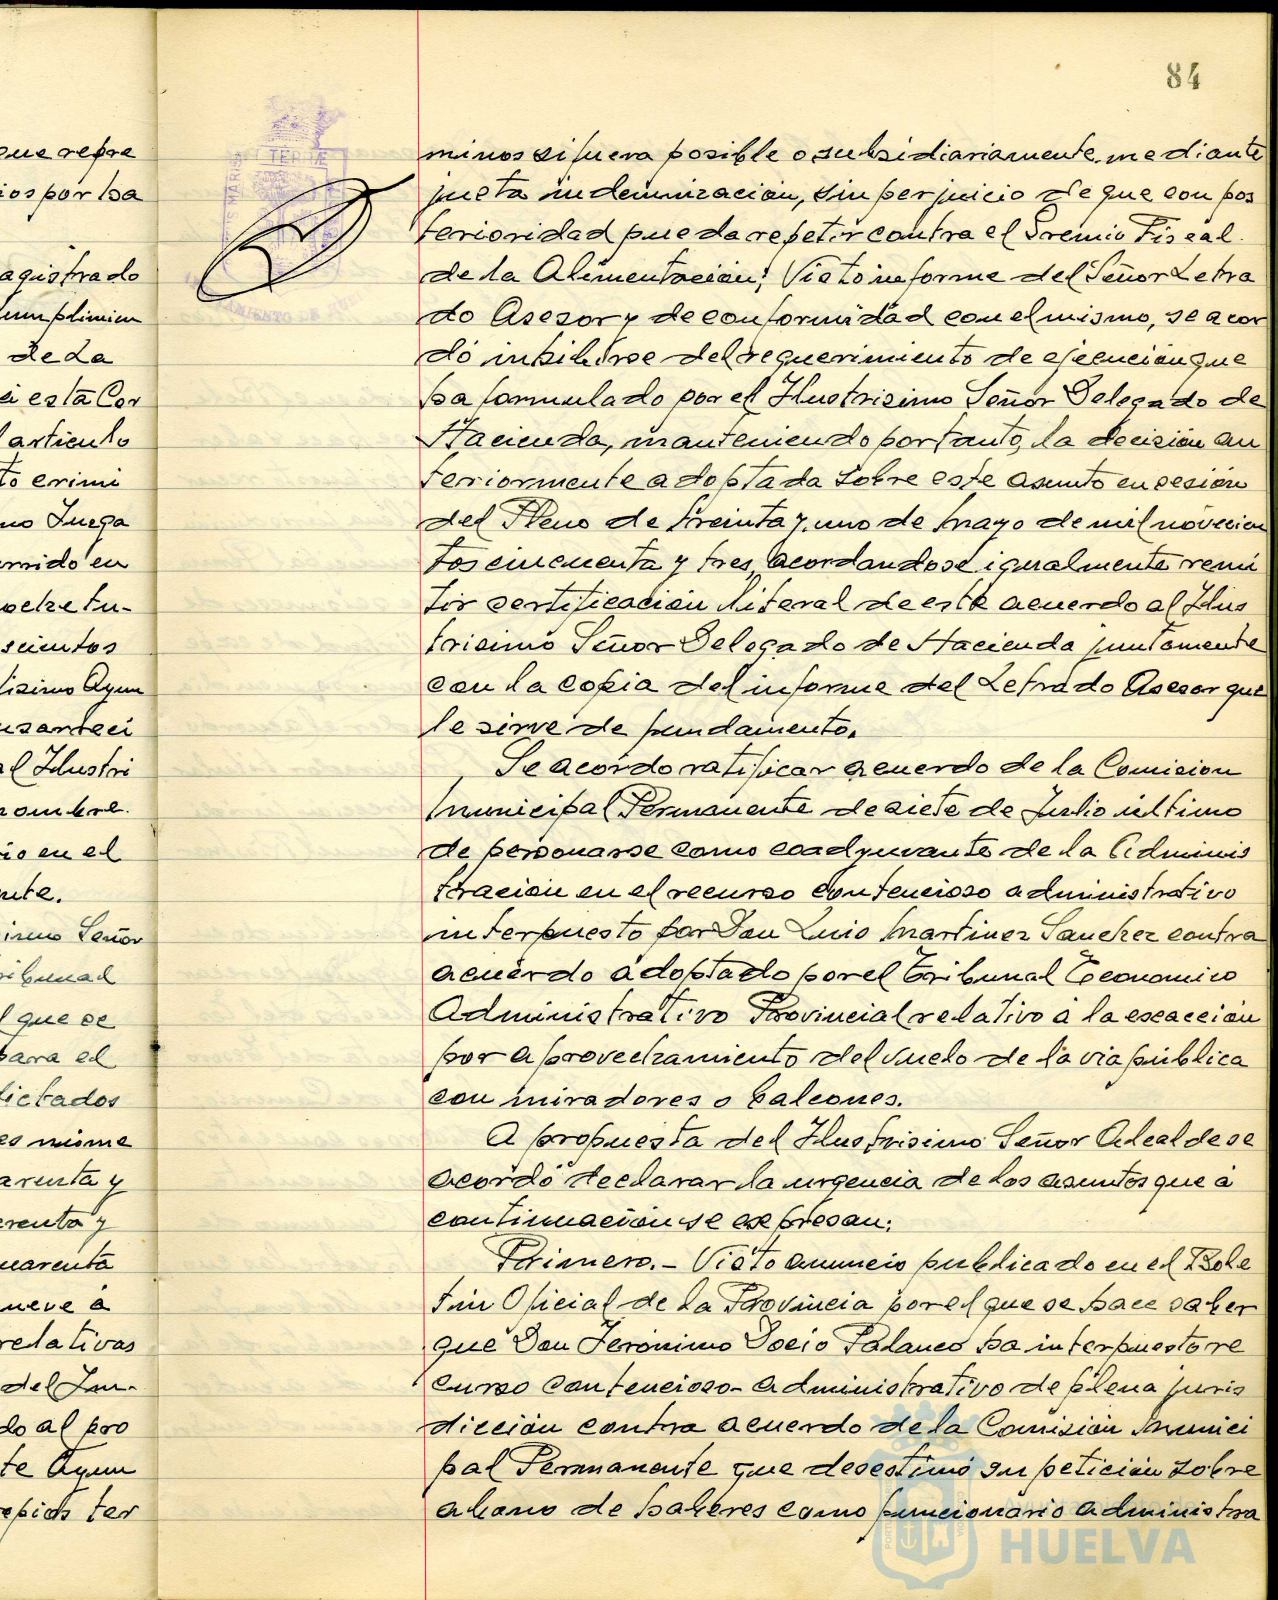 84
que repre
ios por ha
agistrado
umplimien
de La
ei esta Cor
l articulo
to crimi
mo Juzga
rrido en
oche tu-
scientos
tisimo Ayun
usarreci
al Ilustri
nombre
io en el
nte.
isimo Señor
ribunal
l que se
para el
dictados
es misma
arenta y
erenta y
uarenta
nueve á
relativas
del Im-
do al pro
te Ayun
opios ter
TERRÆ
minos si fuera posible o subsidiariamente, mediante
justa indemnizacion, sin perjuicio de que con pos
terioridad pueda repetir contra el Gremio Fiscal
de la Alimentación; Visto informe del Señor Letra
do Asesor y de conformidad con el mismo, se acor
dó inhibirse del requerimiento de ejecución que
ha formulado por el Ilustrisimo Señor Delegado de
Hacienda, manteniendo por tanto, la decisión an
teriormente adoptada sobre este asunto en sesión
del Pleno de treinta y uno de Mayo de mil novecien
tos cincuenta y tres, acordandose igualmente remi
tir certificación literal de este acuerdo al Ilus
trisimo Señor Delegado de Hacienda juntamente
con la copia del informe del Letrado Asesor que
le sirve de fundamento.
Se acordo ratificar acuerdo de la Comision
Municipal Permanente de siete de Julio último
de personarse como coadyuvante de la Adminis
tración en el recurso contencioso administrativo
interpuesto por Don Luis Martinez Sanchez contra
acuerdo adoptado por el Tribunal Economico
Administrativo Provincial relativo á la exacción
por aprovechamiento del vuelo de la via pública
con miradores o balcones.
A propuesta del Ilustrisimo Señor Alcalde se
acordó declarar la urgencia de los asuntos que á
continuación se expresan:
Primero.- Visto anuncio publicado en el Bole
tin Oficial de la Provincia por el que se hace saber
que Don Jerónimo Docio Palanco ha interpuesto re
curso contencioso-administrativo de plena juris
dicción contra acuerdo de la Comisión Munici
pal Permanente que desestimó su petición sobre
abono de haberes como funcionario administra
HUELVA